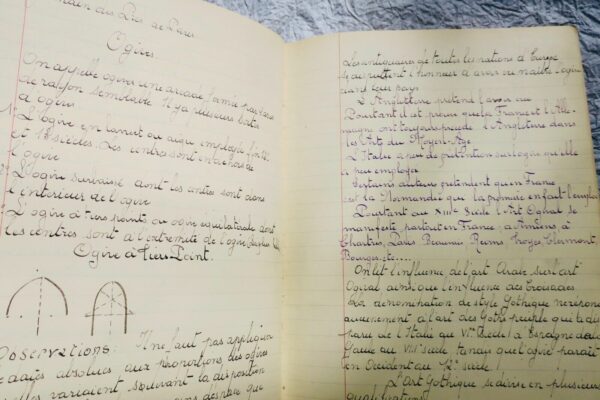 des Prés de Paris
Ogives
On appelle ogive une arcade formée par deux
de rayon semblable. Il y a plusieurs sortes
d'ogives
L'ogive en lancette ou aigu employée fin
et 13 siècles. Les centres sont en dehors de
l'ogive
L'ogive surbaissé dont les centres sont dans
l'intérieur de l'ogive
L'ogive à tiers points ou ogive équilatérale dont
les centres sont à l'extrémité de l'ogive
Ogive à Tiers Point.
Observations: Il ne faut pas appliquer
absolues aux proportions des ogives
elles variaient suivant la disposition
que
Les antiquaires de toutes les nations d'Europe
se disputent l'honneur d'avoir vu naître l'ogive
dans leur pays
L'Angleterre prétend l'avoir vu
Pourtant il est prouvé que la France et l'Alle-
magne ont toujours précédé l'Angleterre dans
les Arts du Moyen-Age
L'Italie a peu de prétention sur l'ogive qu'elle
a peu employée
Certains auteurs prétendent qu'en France
c'est la Normandie qui la première en fait l'emploi
Pourtant au XIIIe Siècle l'Art Ogival se
manifeste partout en France; à Amiens à
Chartres, Paris Beauvais Reims Troyes Clermont,
Bourges etc....
On lit l'influence de l'art Arabe sur l'art
Ogival ainsi que l'influence des Croisades
La dénomination de style Gothique ne répond
aucunement à l'art des Goths peuple que
de l'Italie au VIe Siècle d'Espagne
Gaule au VIIIe siècle, tandis que l'ogive parait
en Occident au 12e siècle!
L'Art Gothique se divise en plusieurs